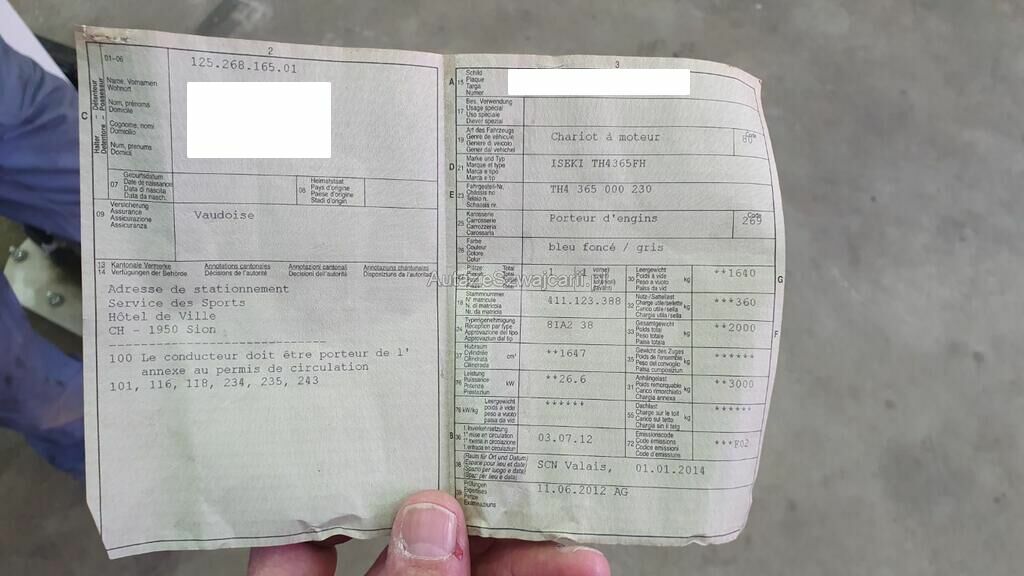 2
01-06
125.268.165.01
C
Halter
Détenteur
Detentore
Possessur
Name, Vornamen
Wohnort
Nom, prénoms
Domicile
Cognome, nomi
Domicilio
Num, prenums
Domicil
07
Geburtsdatum
Date de naissance
Data di nascita
Data da nasch.
08
Heimatstaat
Pays d'origine
Paese d'origine
Stadi d'origin
09
Versicherung
Assurance
Assicurazione
Assicuranza
Vaudoise
13
14
Kantonale Vermerke
Verfügungen der Behörde
Annotations cantonales
Décisions de l'autorité
Annotazioni cantonali
Decisioni dell'autorità
Annotaziuns chantunalas
Disposiziuns da l'autoritad
Adresse de stationnement
Service des Sports
Hôtel de Ville
CH - 1950 Sion
100 Le conducteur doit être porteur de l'
annexe au permis de circulation
101, 116, 118, 234, 235, 243
3
A
15
Schild
Plaque
Targa
Numer
17
Bes. Verwendung
Usage spécial
Uso speciale
Diever spezial
19
Art des Fahrzeugs
Genre de véhicule
Genere di veicolo
Gener dal vehichel
Chariot à moteur
Code
80
D
21
Marke und Typ
Marque et type
Marca e tipo
Marca e tip
ISEKI TH4365FH
E
23
Fahrgestell-Nr.
Châssis no
Telaio n.
Schassis nr.
TH4 365 000 230
25
Karosserie
Carrosserie
Carrozzeria
Carossaria
Porteur d'engins
Code
269
26
Farbe
Couleur
Colore
Colur
bleu foncé / gris
Total
1
1
30
Leergewicht
Poids à vide
Peso a vuoto
Paisa da vid
kg
**1640
G
AutazeSzwajcarii.pl
18
Stammnummer
N° matricule
N. di matricola
Nr. da matricla
411.123.388
32
Nutz-/Sattellast
Charge utile/sellette
Carico utile/sella
Chargia utila/sella
kg
***360
24
Typengenehmigung
Réception par type
Approvazione del tipo
Approvaziun dal tip
8IA2 38
33
Gesamtgewicht
Poids total
Peso totale
Paisa totala
kg
**2000
F
37
Hubraum
Cylindrée
Cilindrata
Cilindrada
cm³
**1647
35
Gewicht des Zuges
Poids de l'ensemble
Peso del convoglio
Paisa cumposiziun
kg
******
76
Leistung
Puissance
Potenza
Prestaziun
kW
**26.6
31
Anhängelast
Poids remorquable
Carico rimorchiato
Chargia annexa
kg
**3000
78 kW/kg
Leergewicht
poids à vide
peso a vuoto
paisa da vid
******
55
Dachlast
Charge sur le toit
Carico sul tetto
Chargia sin il tetg
kg
******
B
36
1. Inverkehrsetzung
1re mise en circulation
1a messa in circolazione
1. entrada en circulaziun
03.07.12
72
Emissionscode
Code émissions
Codice emissioni
Code d'emissiuns
***F02
38
(Raum für Ort und Datum)
(Espace pour lieu et date)
(Spazio per luogo e data)
(Spazi per lieu e data)
SCN Valais,
01.01.2014
39
Prüfungen
Expertises
Perizie
Examinaziuns
11.06.2012 AG